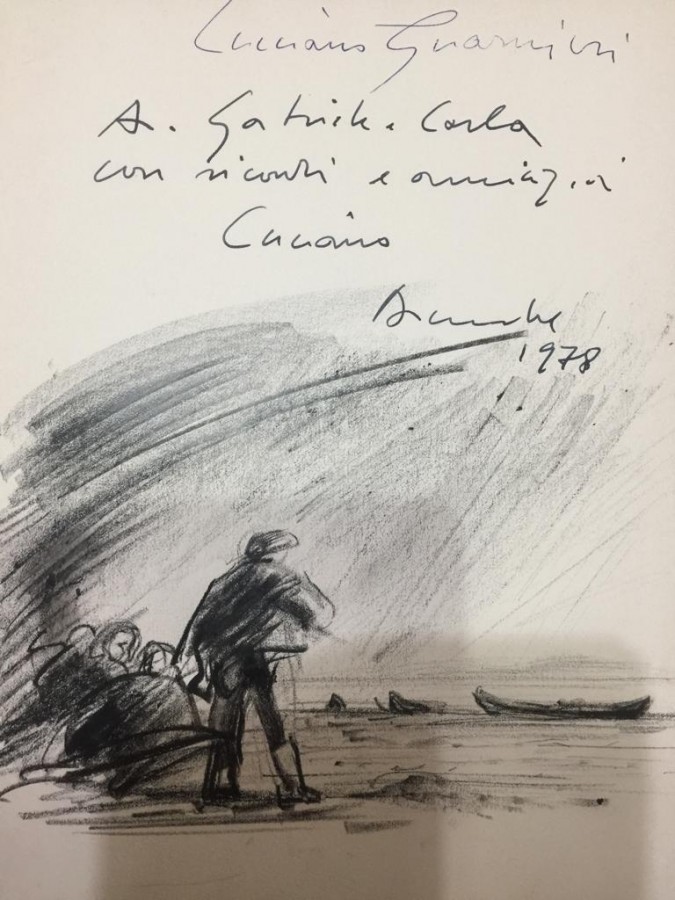 Luciano Guarnieri
A. Gabriele e Carla
con ricordi e amicizia
Luciano
1978